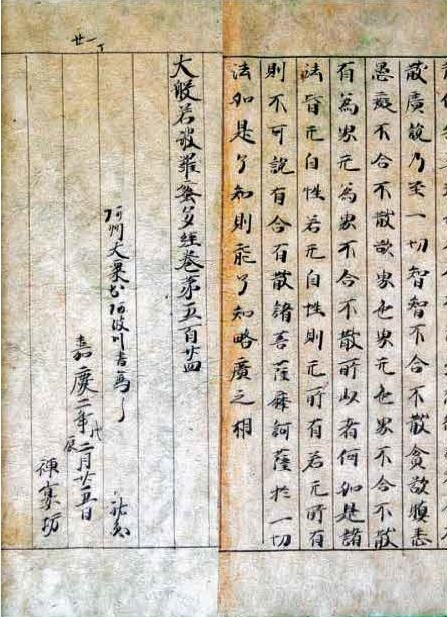 散廣說乃至一切智智不合不散貪欲瞋恚
愚癡不合不散欲界色界无色界不合不散
有為界无為界不合不散所以者何如是諸
法皆无自性若无自性則无所有若无所有
則不可說有合有散諸菩薩摩訶薩於一切
法如是了知則能了知略廣之相
大般若波羅蜜多經卷第五百廿四
阿州大粟於阿波川書寫了
嘉慶二年戊辰二月廿五日
坊
廿一丁